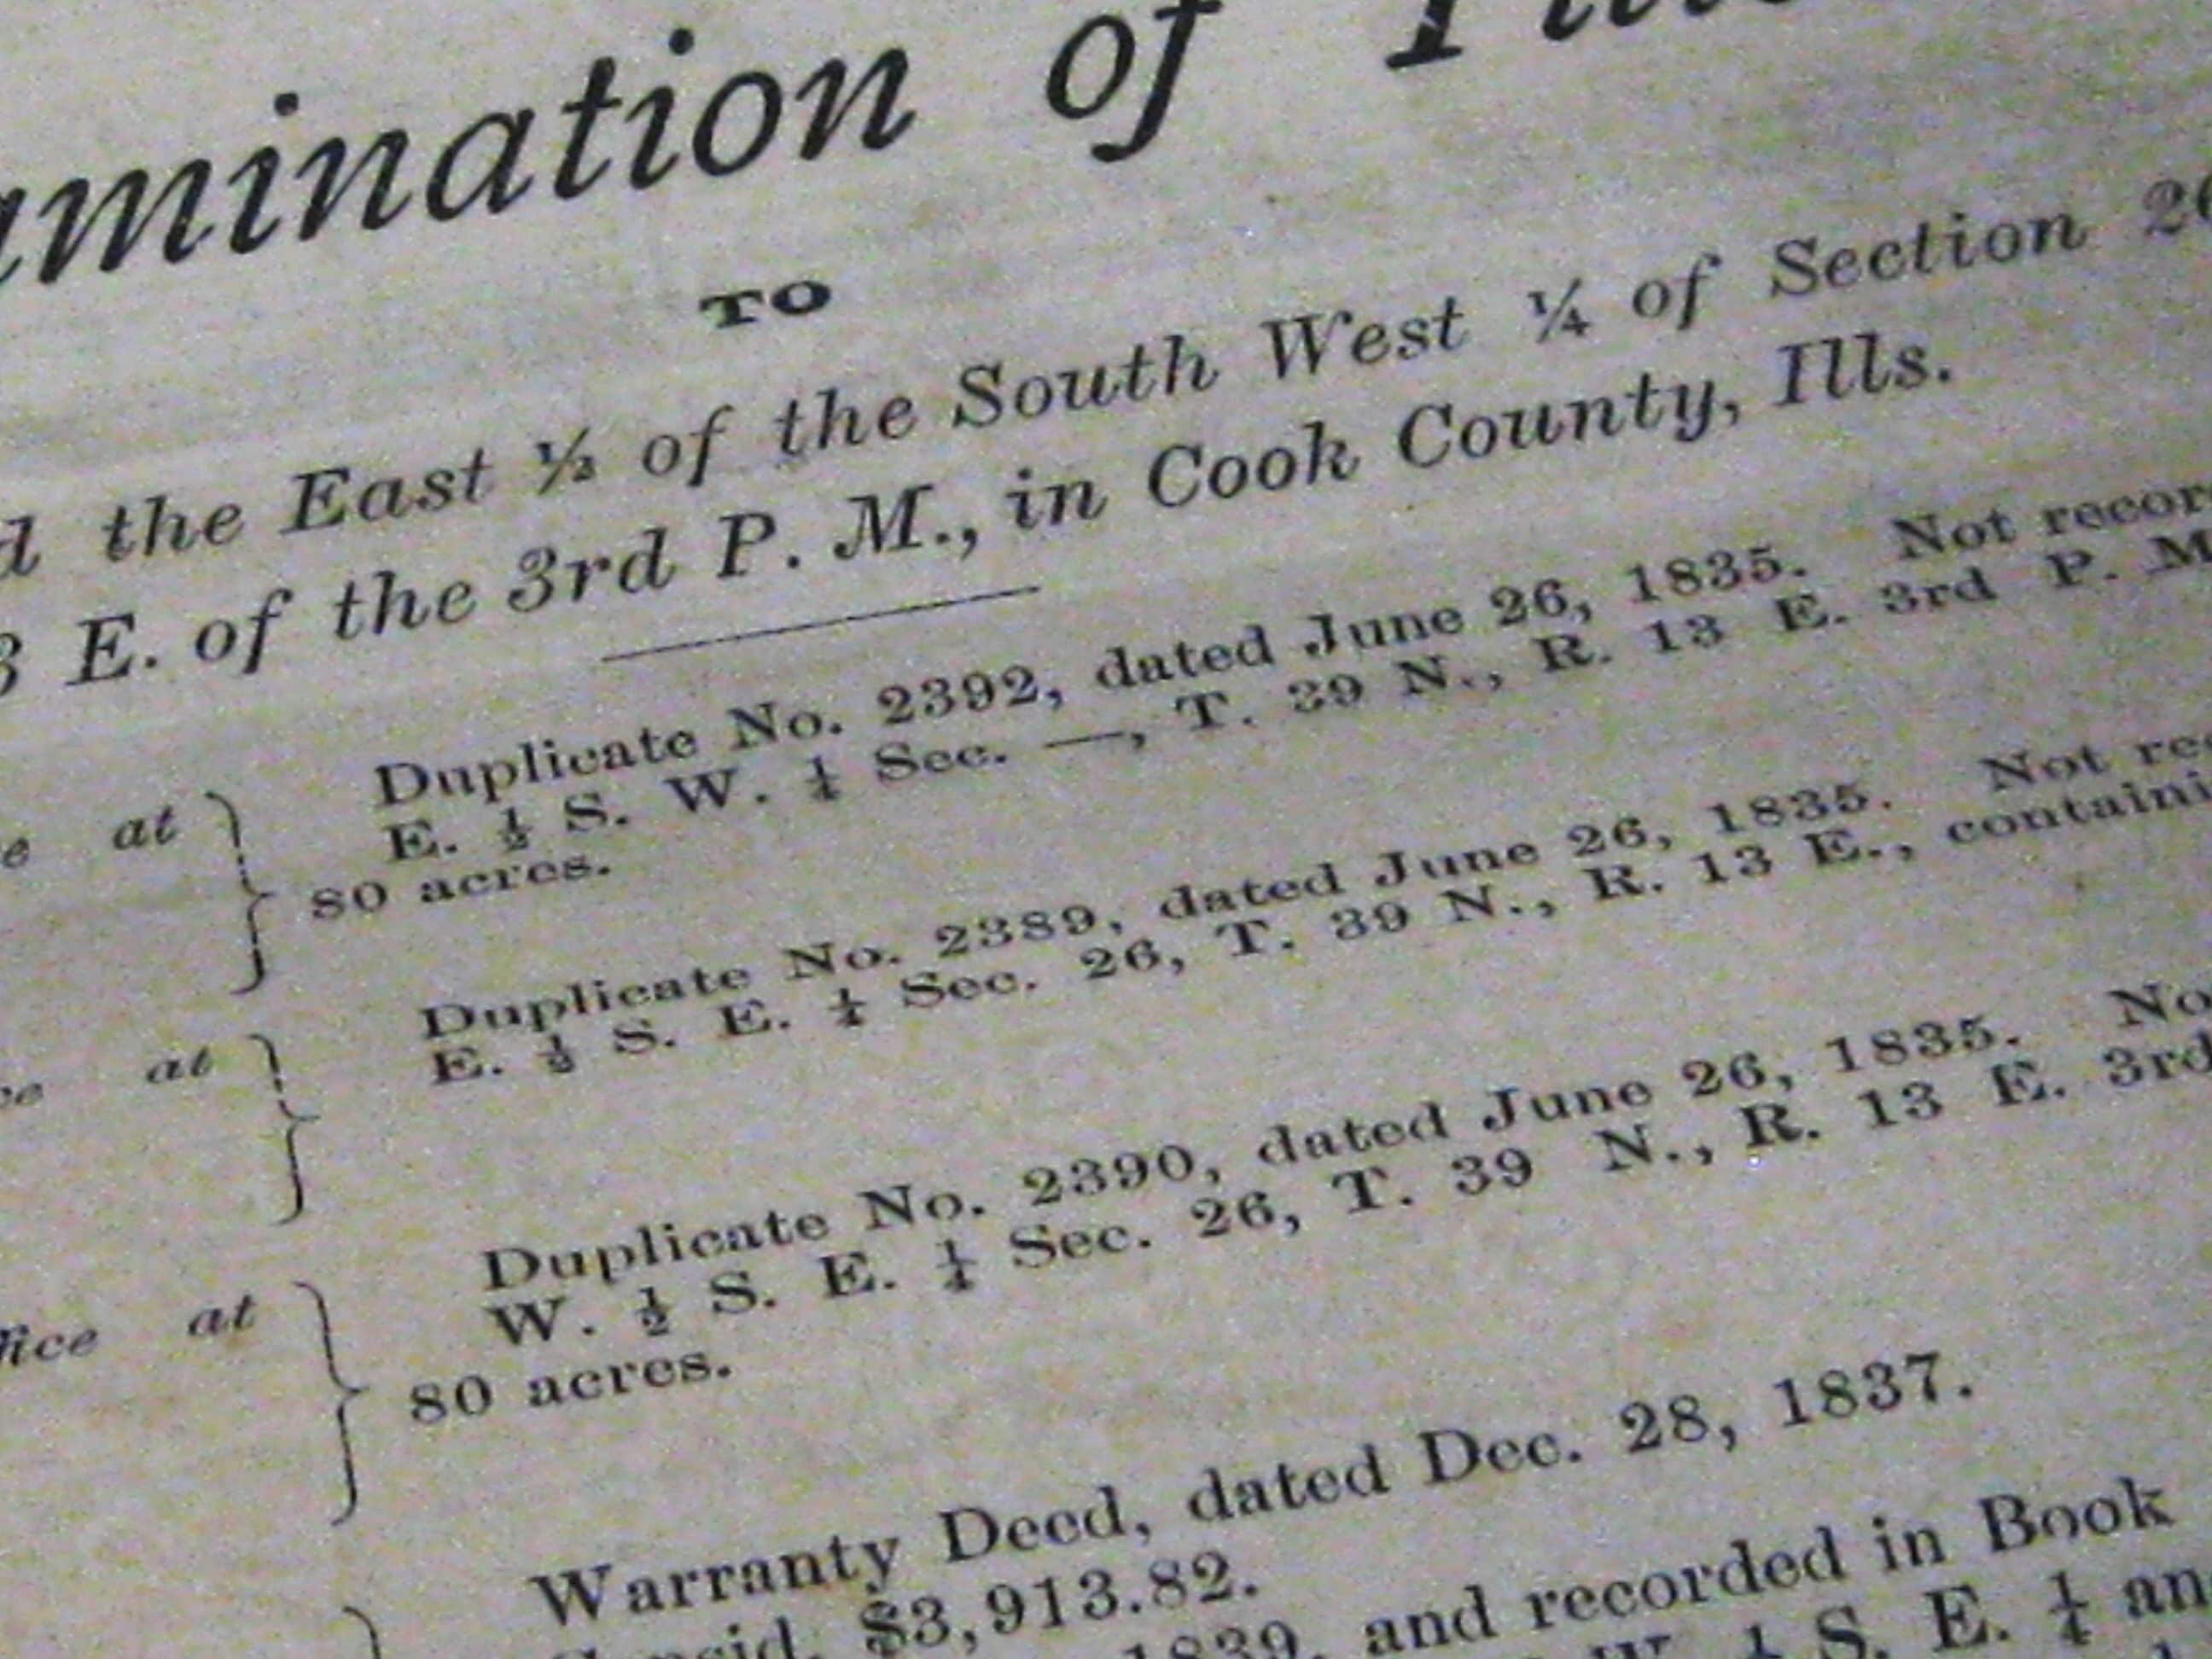 amination of
TO
d the East ½ of the South West ¼ of Section 26
3 E. of the 3rd P. M., in Cook County, Ills.
Duplicate No. 2392, dated June 26, 1835. Not recor
at E. ½ S. W. ¼ Sec. —, T. 39 N., R. 13 E. 3rd P. M
80 acres.
Duplicate No. 2389, dated June 26, 1835. Not re
at E. ½ S. E. ¼ Sec. 26, T. 39 N., R. 13 E., containi
Duplicate No. 2390, dated June 26, 1835. No
fice at W. ½ S. E. ¼ Sec. 26, T. 39 N., R. 13 E. 3rd
80 acres.
Warranty Deed, dated Dec. 28, 1837.
$3,913.82.
1839, and recorded in Book
W. ½ S. E. ¼ an